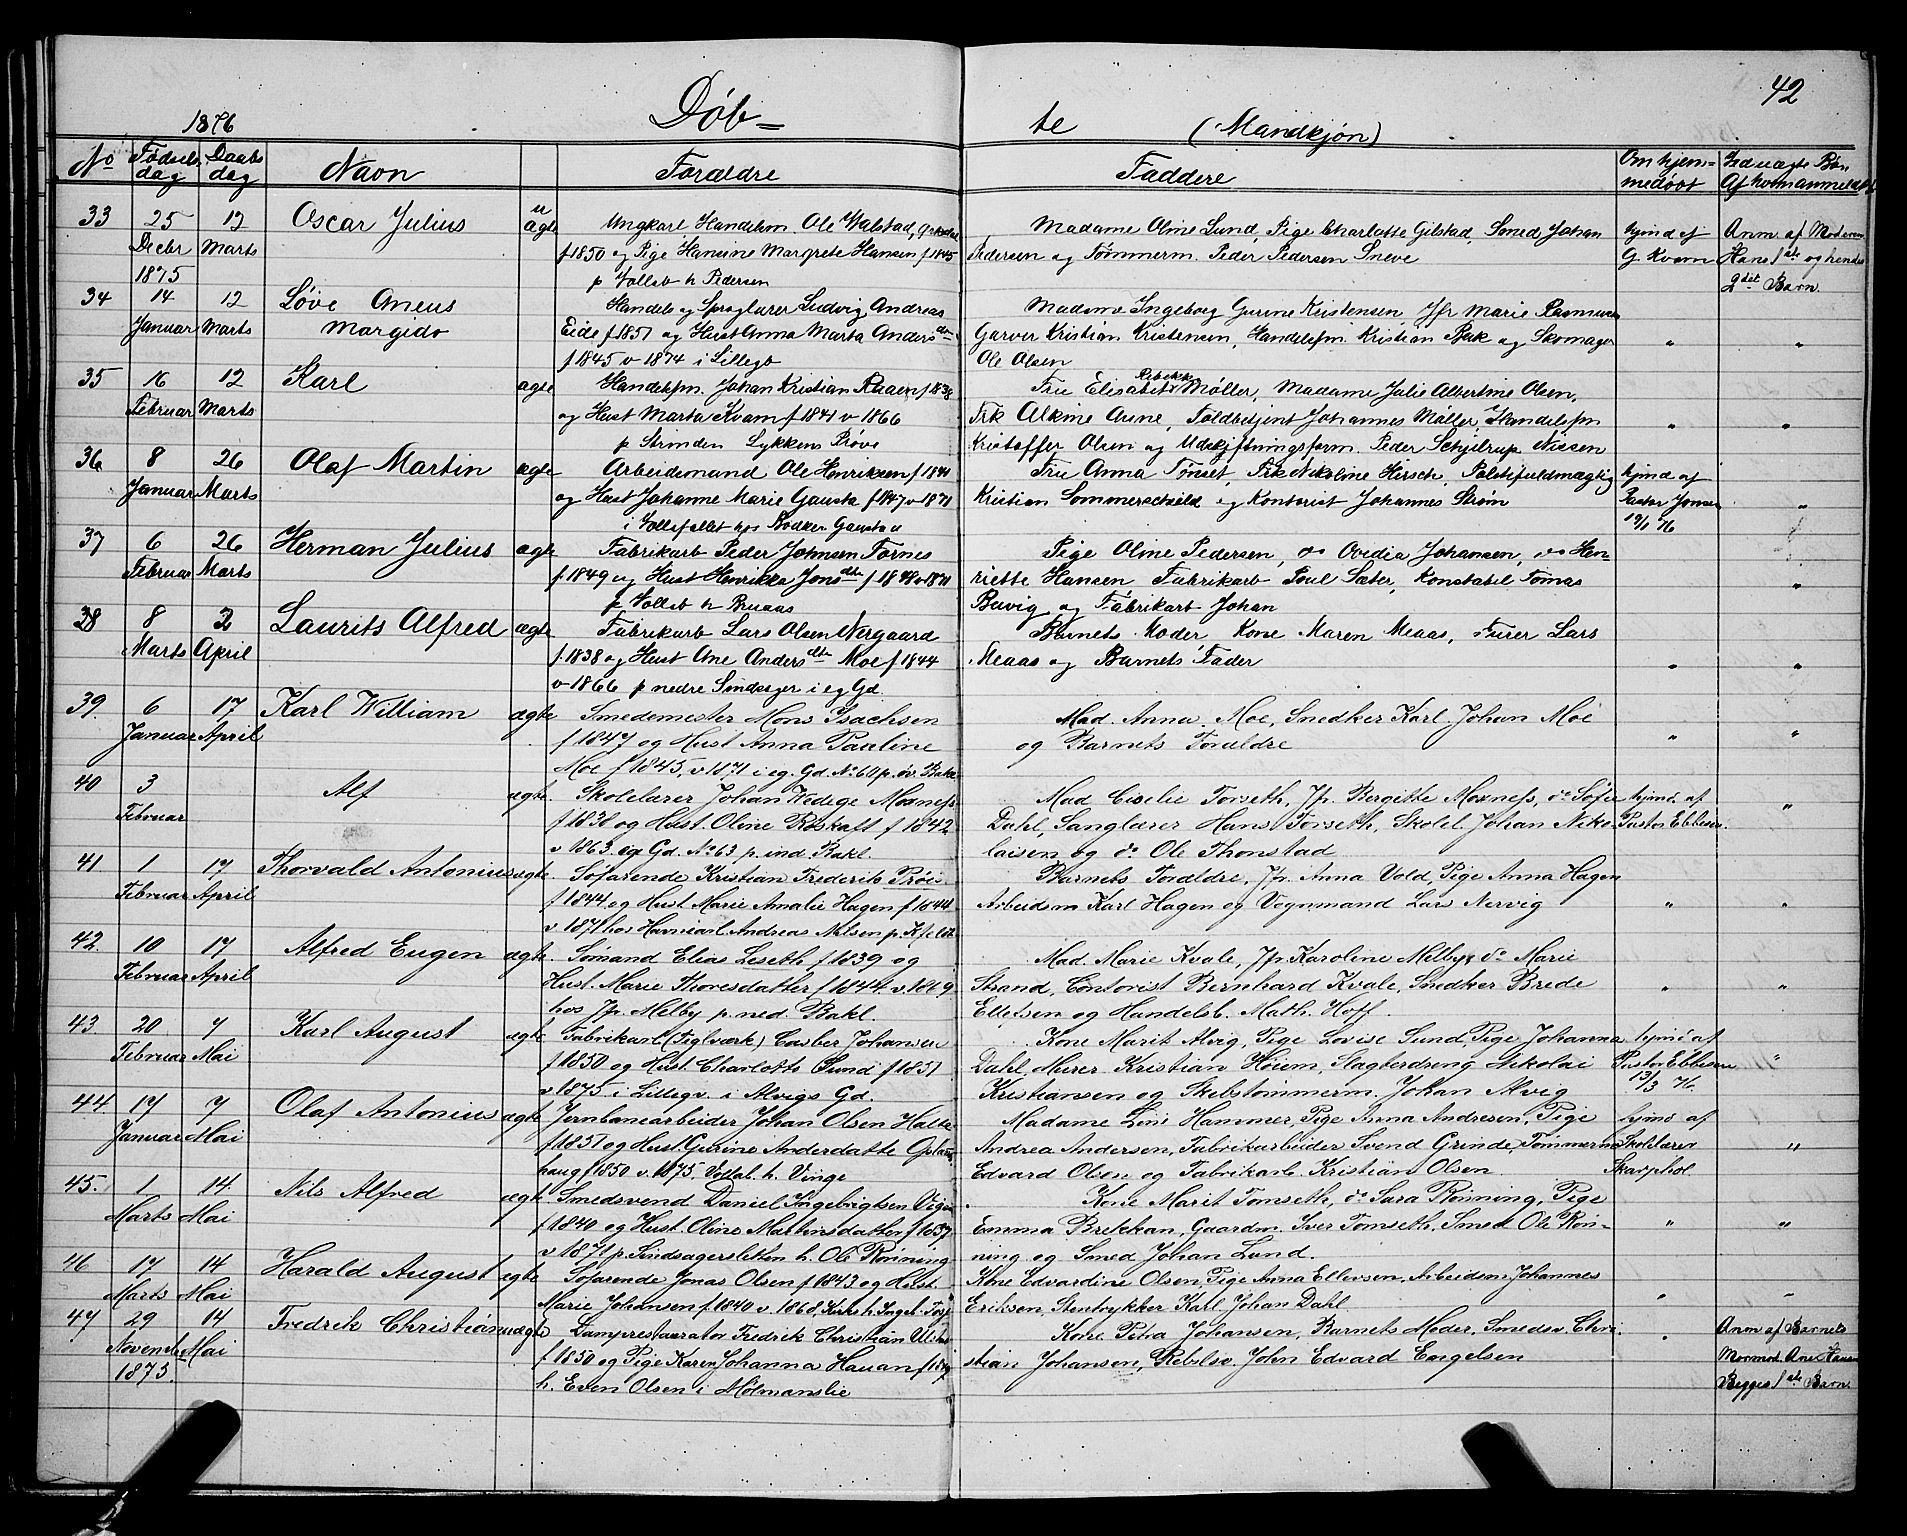 42
1876 Döb= te (Mandkjøn)
No Fødsels dag Daabs dag Navn Forældre Faddere Om hjem= medøbt Ved uægte Børn Af hvem anmeldt
33 25 Decbr 1875 12 Marts Oscar Julius uægte Ungkarl Handelsm. Ole Walstad,
f 1850 og Pige Hansine Margrete Hansen f 1845
p Vollab h Pedersen
Madame Oline Lund, Pige Charlotte Gilstad, Smed Johan
Pedersen og Tømmerm. Peder Pedersen Sneve
hjmd af G Kvam
Anm. af Moderen
Hans 1ste og hendes
2det Barn
34 14 Januar 12 Marts Løve Oneus Margido
Handels og Sproglærer Ludvig Andreas
Eide f 1851 og Hust Anna Marta Andersdtr
f 1845 v 1874 i Lillegb
Madame Ingeborg Gurine Kristensen, Jfr Marie Rasmussen
Garver Kristian Kristensen, Handelsfm. Kristian Bak og Skomager
Ole Olsen
" "
35 16 Februar 12 Marts Karl ægte
Handelsfm. Johan Kristian Raaen f 1838
og Hust Marta Kvam f 1841 v 1866
p Strinden Lykkens Prøve
Fru Elisabet Rebekka Møller, Madame Julie Albertine Olsen,
Frk Alkine Arne, Toldbetjent Johannes Møller, Handelsfm
Kristoffer Olsen og Udskiftningsform. Peder Schjelrup Nissen
" "
36 8 Januar 26 Marts Olaf Martin ægte
Arbeidsmand Ole Henriksen f 1841
og Hust Johanne Marie Gausta f 1847 v 1871
i Vollafallet hos Bødker Gaustad
Fru Anna Tønset, Frk Nikoline Hirsch, Politifuldmægtig
Kristian Sommerschield og Kontorist Johannes Strøm
hjmd af Pastor Jensen 13/1 76 "
37 6 Februar 26 Marts Herman Julius ægte
Fabrikarb Peder Johnsen Fornes
f 1849 og Hust Henrikka Jonsdtr f 1848 v 1871
p Vollab h Bruaas
Pige Oline Pedersen, do Ovidia Johansen, do Hen-
riette Hansen Fabrikarb Poul Sæter, Konstabel Tomas
Buvig og Fabrikarb Johan
"
38 8 Marts 2 April Laurits Alfred ægte
Fabrikarb Lars Olsen Nergaard
f. 1838 og Hust Ane Andersdtr Moe f 1844
v 1866 p nedre Sindsager i eg Gd.
Barnets Moder, Kone Maren Meaas, Furer Lars
Meaas og Barnets Fader
" "
39. 6 Januar 17 April Karl William ægte
Smedemester Mons Isachsen
f 1847 og Hust Anna Pauline
Moe f 1845, v 1871 i eg. Gd. No 60 p. øv. Bakl
Mad. Anna. Moe, Snedker Karl Johan Moe
og Barnets Forældre
" "
40 3 Februar Alf ægte.
Skolelærer Johan Wedege Moxness
f 1838 og Hust. Oline Røskaft f 1842
v 1863 eg Gd. No 63 p. ind. Bakl.
Mad Cicelie Forseth, Jfr. Bergitte Moxness, do Sofie
Dahl, Sanglærer Hans Forseth, Skolel. Johan Niko-
laisen og do Ole Thonstad
hjmd. af Pastor Ebbesen "
41. 1 Februar 17 April Thorvald Antonius ægte
Søfarende Kristian Frederik Prøis
f 1844 og Hust Marie Amalie Hagen f 1844
v 1871 hos Havnearb. Andreas Nilsen p.
Barnets Forældre, Jfr. Anna Vold, Pige Anna Hagen
Arbeidsm Karl Hagen og Vognmand Lars Nervig
" "
42. 10 Februar 17 April Alfred Eugen ægte.
Sømand Elias Leseth f 1839 og
Hust. Marie Thoresdatter f 1844. v. 1869
hos Jfr. Melby p. ned. Bakl.
Mad Marie Kvale, Jfr. Karoline Melby, do Marie
Strand, Contorist Bernhard Kvale, Snedker Brede
Ellefsen og Handelsb. Math. Hoff.
" "
43 20 Februar 7 Mai Karl August ægte
Fabrikarb (Teglværk) Casber Johansen
f 1850 og Hust. Charlotte Sund f 1851
v 1875 i Lillegv. i Alvigs Gd.
Kone Marit Alvig, Pige Lovise Sund, Pige Johanna
Dahl, Murer Kristian Høiem, Slagterdreng Nikolai
Kristiansen og Skibstømmerm. Johan Alvig
hjmd af Pastor Ebbesen 13/3 76. "
44 17 Januar 7 Mai Olaf Antonius ægte
Jernbanearbeider Johan Olsen Halte
f 1851 og Hust. Gurine Andersdatte
haug f 1850 v. 1875, Vollab. h. Vinge
Madame Line Hammer, Pige Anna Andresen, Pige
Andrea Andersen, Fabrikarbeider Svend Grinde, Tømmerm
Edvard Olsen og Fabrikarb. Kristian Olsen
hjmd af Skolelærer Skarphol "
45. 1 Marts 14 Mai Nils Alfred ægte
Smedsvend Daniel Ingebrigtsen Vigen
f 1840 og Hust. Oline Mattinsdatter f 1837
v 1871 p Sindsagersletten h. Ole Rønning
Kone Marit Tomseth, do Sara Rønning, Pige
Emma Brekkan, Gaardm. Iver Tomseth, Smed Ole Røn-
ning og Smed Johan Lund.
" "
46 17 Marts 14 Mai Harald August ægte
Søfarende Jonas Olsen f 1843 og Hust.
Marie Johansen f. 1840 v. 1868,
Kone Edvardine Olsen, Pige Anna Ellevsen, Arbeidsm. Johannes
Eriksen, Stentrykker Karl Johan Dahl.
" "
47 29 November 1875. 14 Mai Fredrik Christian uægte
Damprestauratør Fredrik Christian
f 1850 og Pige Karen Johanna Hauan f 1847
h. Even Olsen i Mølmanslie
Kone Petra Johansen, Barnets Moder, Smedsv. Chri-
stian Johansen, Rebslsv. John Edvard Engelsen
"
Anm af Barnets
Mormod. Ane Hauan
Begges 1ste Barn.